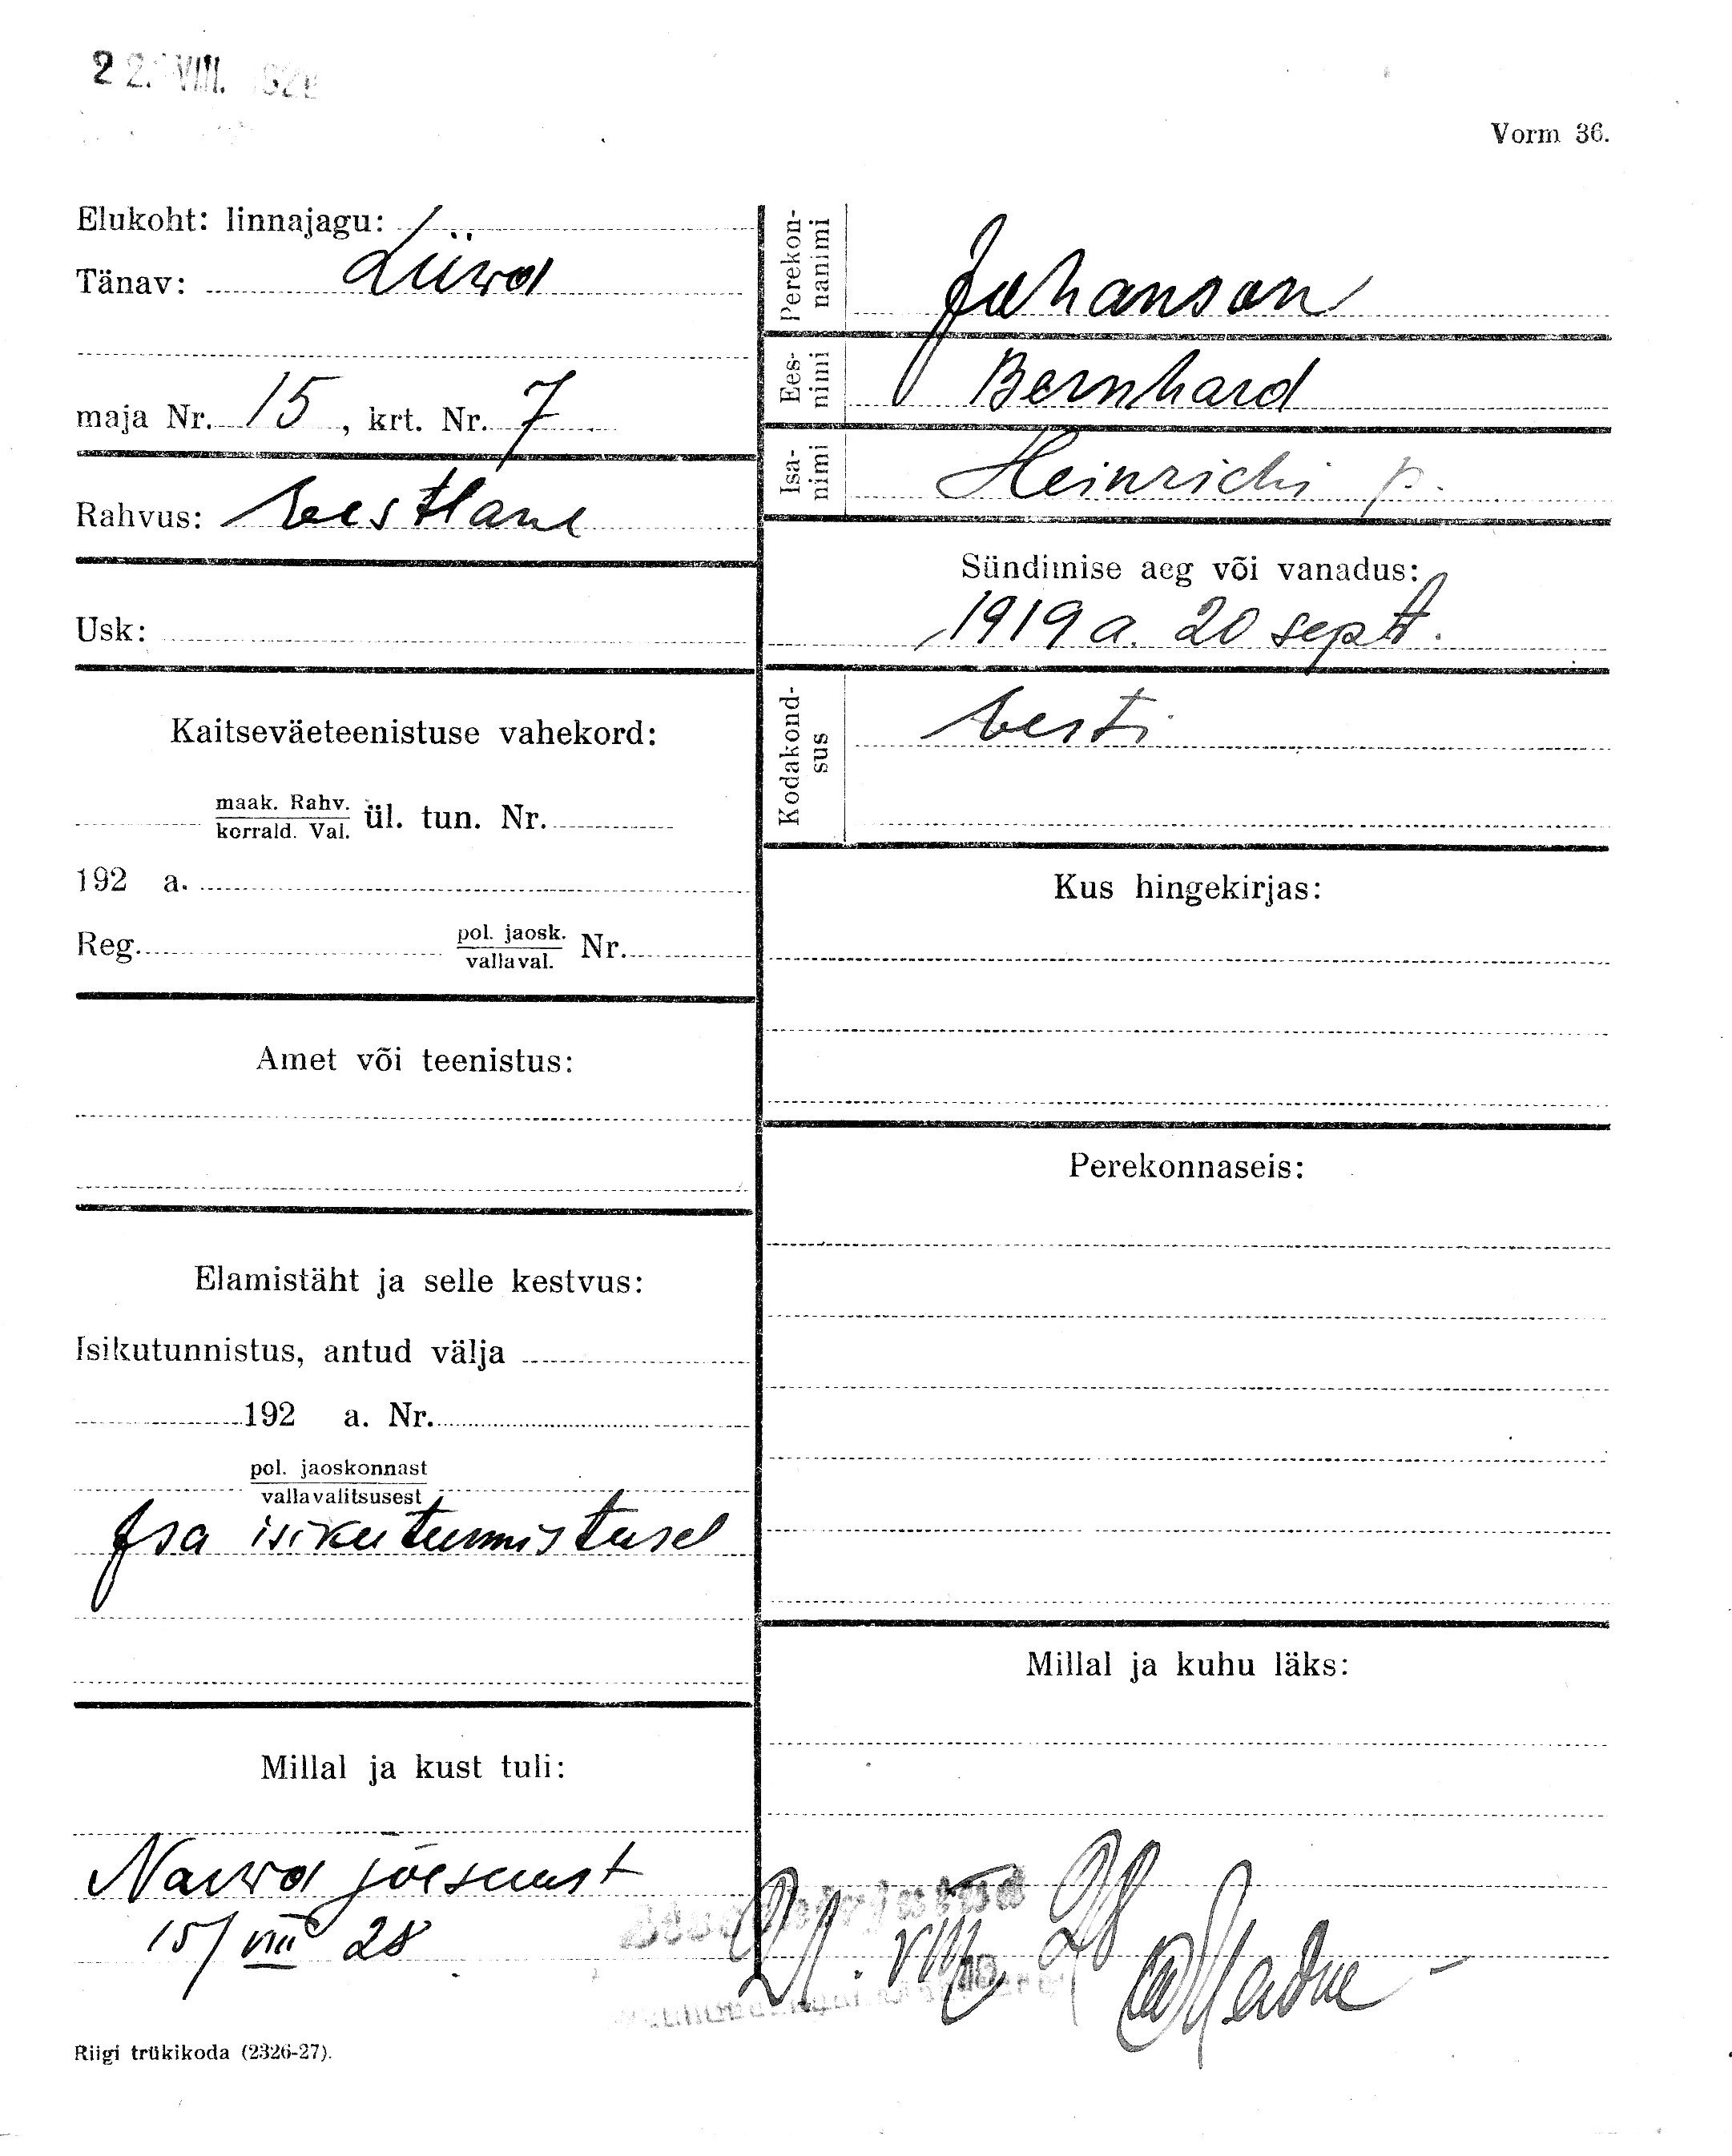 22. VIII. 1928
Vorm 36.
Elukoht: linnajagu:
Tänav: Liiwa
maja Nr. 15, krt. Nr. 7
Rahvus: eestlane
Usk:
Kaitseväeteenistuse vahekord:
maak. Rahv.
korrald. Val. ül. tun. Nr.
192 a.
Reg. pol. jaosk.
vallaval. Nr.
Amet või teenistus:
Elamistäht ja selle kestvus:
Isikutunnistus, antud välja
192 a. Nr.
pol. jaoskonnast
vallavalitsusest
Isa isikutunnistusel
Millal ja kust tuli:
Narwa jõesuust
15/VIII 28
Riigi trükikoda (2326-27).
Perekon-
nanimi
Johanson
Ees-
nimi
Bernhard
Isa-
nimi
Heinrichi p.
Sündimise aeg või vanadus:
1919 a. 20 sept.
Kodakond-
sus
Eesti
Kus hingekirjas:
Perekonnaseis:
Millal ja kuhu läks:
21. VIII 28